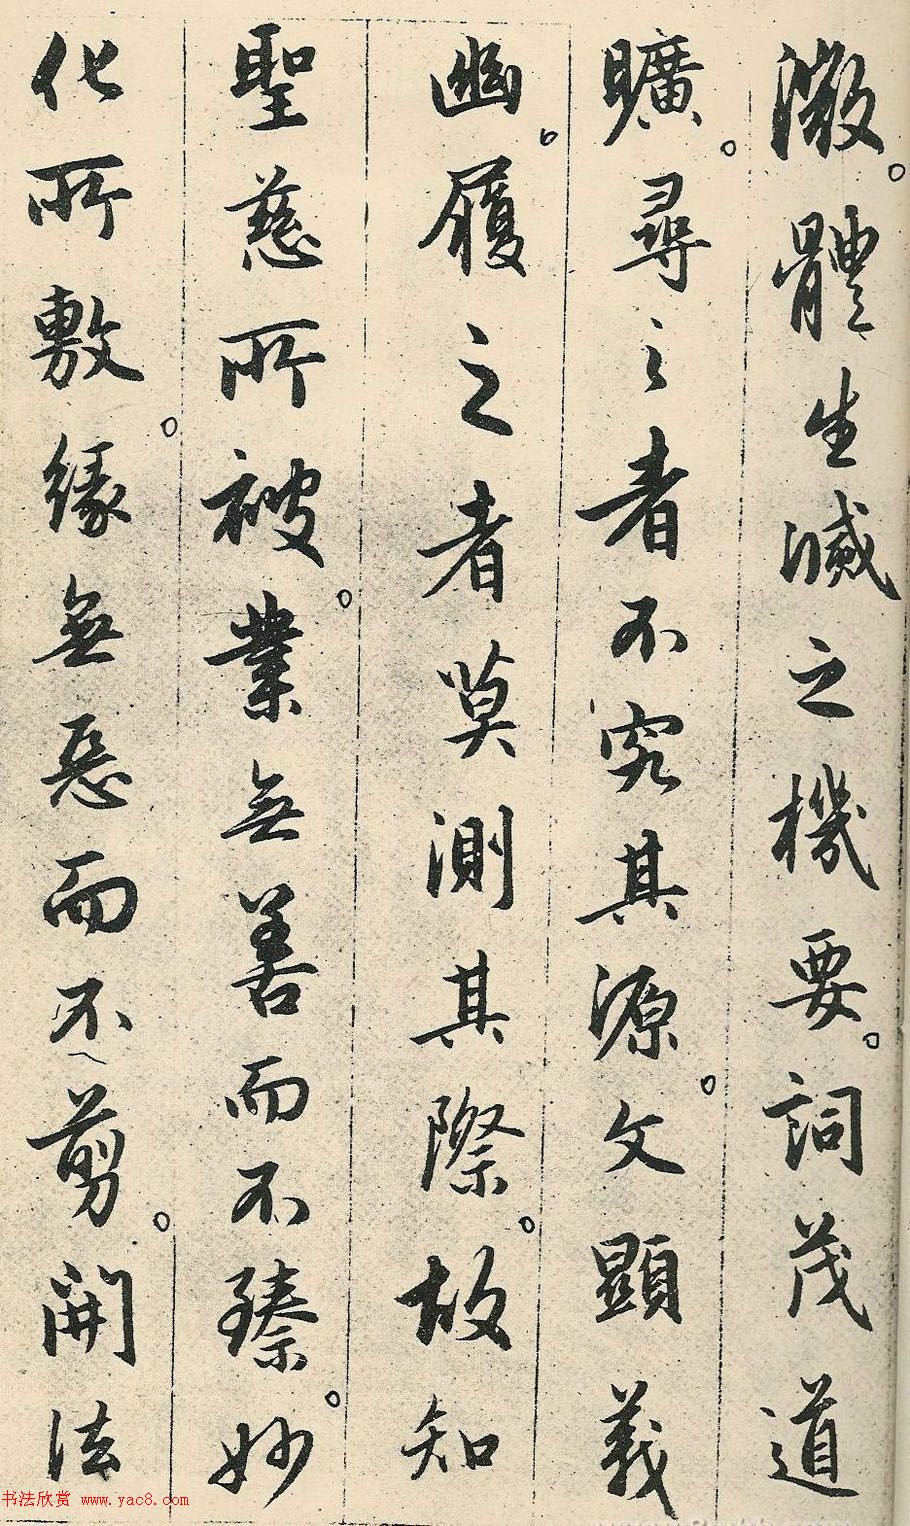 澂。體生滅之機要。詞茂道
曠。尋之者不究其源。文顯義
幽。履之者莫測其際。故知
聖慈所被。業無善而不臻。妙
化所敷。緣無惡而不剪。開法
书法欣赏 www.yac8.com